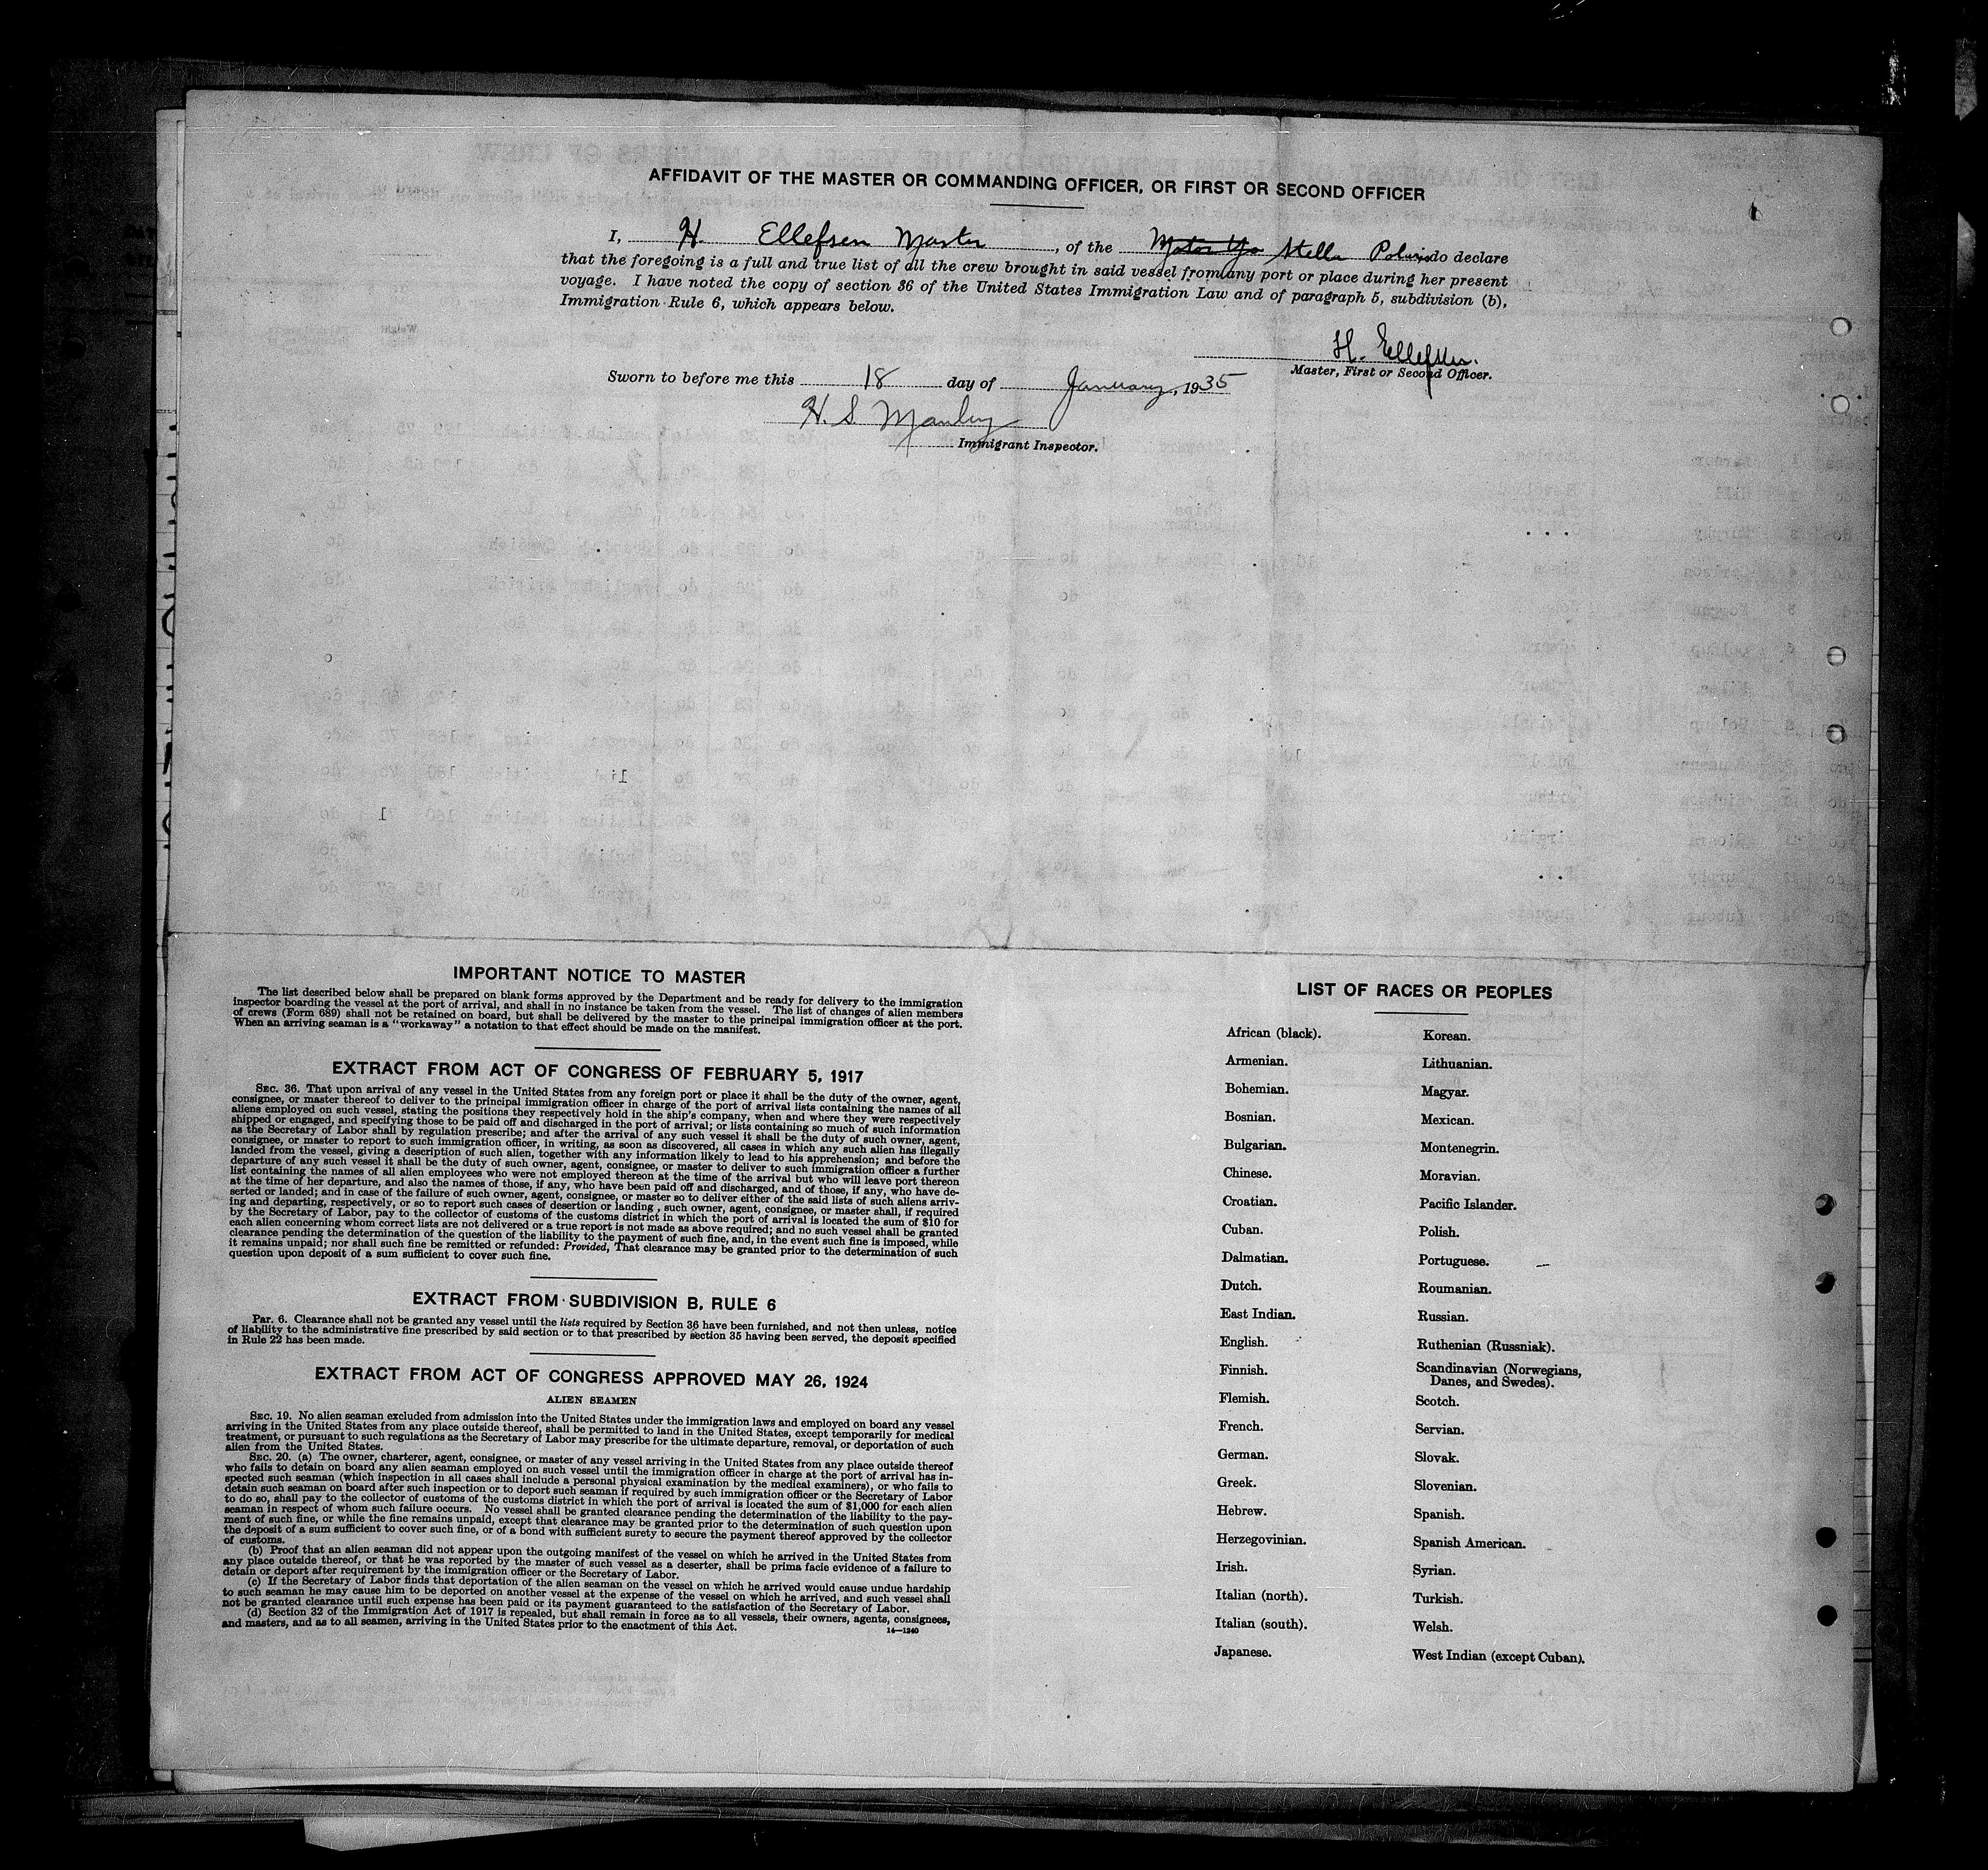 AFFIDAVIT OF THE MASTER OR COMMANDING OFFICER, OR FIRST OR SECOND OFFICER
I, H. Ellefsen Master, of the Motor Ya Stella Polaris do declare
that the foregoing is a full and true list of all the crew brought in said vessel from any port or place during her present
voyage. I have noted the copy of section 36 of the United States Immigration Law and of paragraph 5, subdivision (b),
Immigration Rule 6, which appears below.
H. Ellefsen.
Master, First or Second Officer.
Sworn to before me this 18 day of January, 1935
H. S. Manley
Immigrant Inspector.
IMPORTANT NOTICE TO MASTER
The list described below shall be prepared on blank forms approved by the Department and be ready for delivery to the immigration
inspector boarding the vessel at the port of arrival, and shall in no instance be taken from the vessel. The list of changes of alien members
of crews (Form 689) shall not be retained on board, but shall be delivered by the master to the principal immigration officer at the port.
When an arriving seaman is a "workaway" a notation to that effect should be made on the manifest.
EXTRACT FROM ACT OF CONGRESS OF FEBRUARY 5, 1917
SEC. 36. That upon arrival of any vessel in the United States from any foreign port or place it shall be the duty of the owner, agent,
consignee, or master thereof to deliver to the principal immigration officer in charge of the port of arrival lists containing the names of all
aliens employed on such vessel, stating the positions they respectively hold in the ship's company, when and where they were respectively
shipped or engaged, and specifying those to be paid off and discharged in the port of arrival; or lists containing so much of such information
as the Secretary of Labor shall by regulation prescribe; and after the arrival of any such vessel it shall be the duty of such owner, agent,
consignee, or master to report to such immigration officer, in writing, as soon as discovered, all cases in which any such alien has illegally
landed from the vessel, giving a description of such alien, together with any information likely to lead to his apprehension; and before the
departure of any such vessel it shall be the duty of such owner, agent, consignee, or master to deliver to such immigration officer a further
list containing the names of all alien employees who were not employed thereon at the time of the arrival but who will leave port thereon
at the time of her departure, and also the names of those, if any, who have been paid off and discharged, and of those, if any, who have de-
serted or landed; and in case of the failure of such owner, agent, consignee, or master so to deliver either of the said lists of such aliens arriv-
ing and departing, respectively, or so to report such cases of desertion or landing, such owner, agent, consignee, or master shall, if required
by the Secretary of Labor, pay to the collector of customs of the customs district in which the port of arrival is located the sum of $10 for
each alien concerning whom correct lists are not delivered or a true report is not made as above required; and no such vessel shall be granted
clearance pending the determination of the question of the liability to the payment of such fine, and, in the event such fine is imposed, while
it remains unpaid; nor shall such fine be remitted or refunded: Provided, That clearance may be granted prior to the determination of such
question upon deposit of a sum sufficient to cover such fine.
EXTRACT FROM SUBDIVISION B, RULE 6
Par. 6. Clearance shall not be granted any vessel until the lists required by Section 36 have been furnished, and not then unless, notice
of liability to the administrative fine prescribed by said section or to that prescribed by section 35 having been served, the deposit specified
in Rule 22 has been made.
EXTRACT FROM ACT OF CONGRESS APPROVED MAY 26, 1924
ALIEN SEAMEN
SEC. 19. No alien seaman excluded from admission into the United States under the immigration laws and employed on board any vessel
arriving in the United States from any place outside thereof, shall be permitted to land in the United States, except temporarily for medical
treatment, or pursuant to such regulations as the Secretary of Labor may prescribe for the ultimate departure, removal, or deportation of such
alien from the United States.
SEC. 20. (a) The owner, charterer, agent, consignee, or master of any vessel arriving in the United States from any place outside thereof
who fails to detain on board any alien seaman employed on such vessel until the immigration officer in charge at the port of arrival has in-
spected such seaman (which inspection in all cases shall include a personal physical examination by the medical examiners), or who fails to
detain such seaman on board after such inspection or to deport such seaman if required by such immigration officer or the Secretary of Labor
to do so, shall pay to the collector of customs of the customs district in which the port of arrival is located the sum of $1,000 for each alien
seaman in respect of whom such failure occurs. No vessel shall be granted clearance pending the determination of the liability to the pay-
ment of such fine, or while the fine remains unpaid, except that clearance may be granted prior to the determination of such question upon
the deposit of a sum sufficient to cover such fine, or of a bond with sufficient surety to secure the payment thereof approved by the collector
of customs.
(b) Proof that an alien seaman did not appear upon the outgoing manifest of the vessel on which he arrived in the United States from
any place outside thereof, or that he was reported by the master of such vessel as a deserter, shall be prima facie evidence of a failure to
detain or deport after requirement by the immigration officer or the Secretary of Labor.
(c) If the Secretary of Labor finds that deportation of the alien seaman on the vessel on which he arrived would cause undue hardship
to such seaman he may cause him to be deported on another vessel at the expense of the vessel on which he arrived, and such vessel shall
not be granted clearance until such expense has been paid or its payment guaranteed to the satisfaction of the Secretary of Labor.
(d) Section 32 of the Immigration Act of 1917 is repealed, but shall remain in force as to all vessels, their owners, agents, consignees,
and masters, and as to all seamen, arriving in the United States prior to the enactment of this Act.
14—1240
LIST OF RACES OR PEOPLES
African (black).
Armenian.
Bohemian.
Bosnian.
Bulgarian.
Chinese.
Croatian.
Cuban.
Dalmatian.
Dutch.
East Indian.
English.
Finnish.
Flemish.
French.
German.
Greek.
Hebrew.
Herzegovinian.
Irish.
Italian (north).
Italian (south).
Japanese.
Korean.
Lithuanian.
Magyar.
Mexican.
Montenegrin.
Moravian.
Pacific Islander.
Polish.
Portuguese.
Roumanian.
Russian.
Ruthenian (Russniak).
Scandinavian (Norwegians,
Danes, and Swedes).
Scotch.
Servian.
Slovak.
Slovenian.
Spanish.
Spanish American.
Syrian.
Turkish.
Welsh.
West Indian (except Cuban).